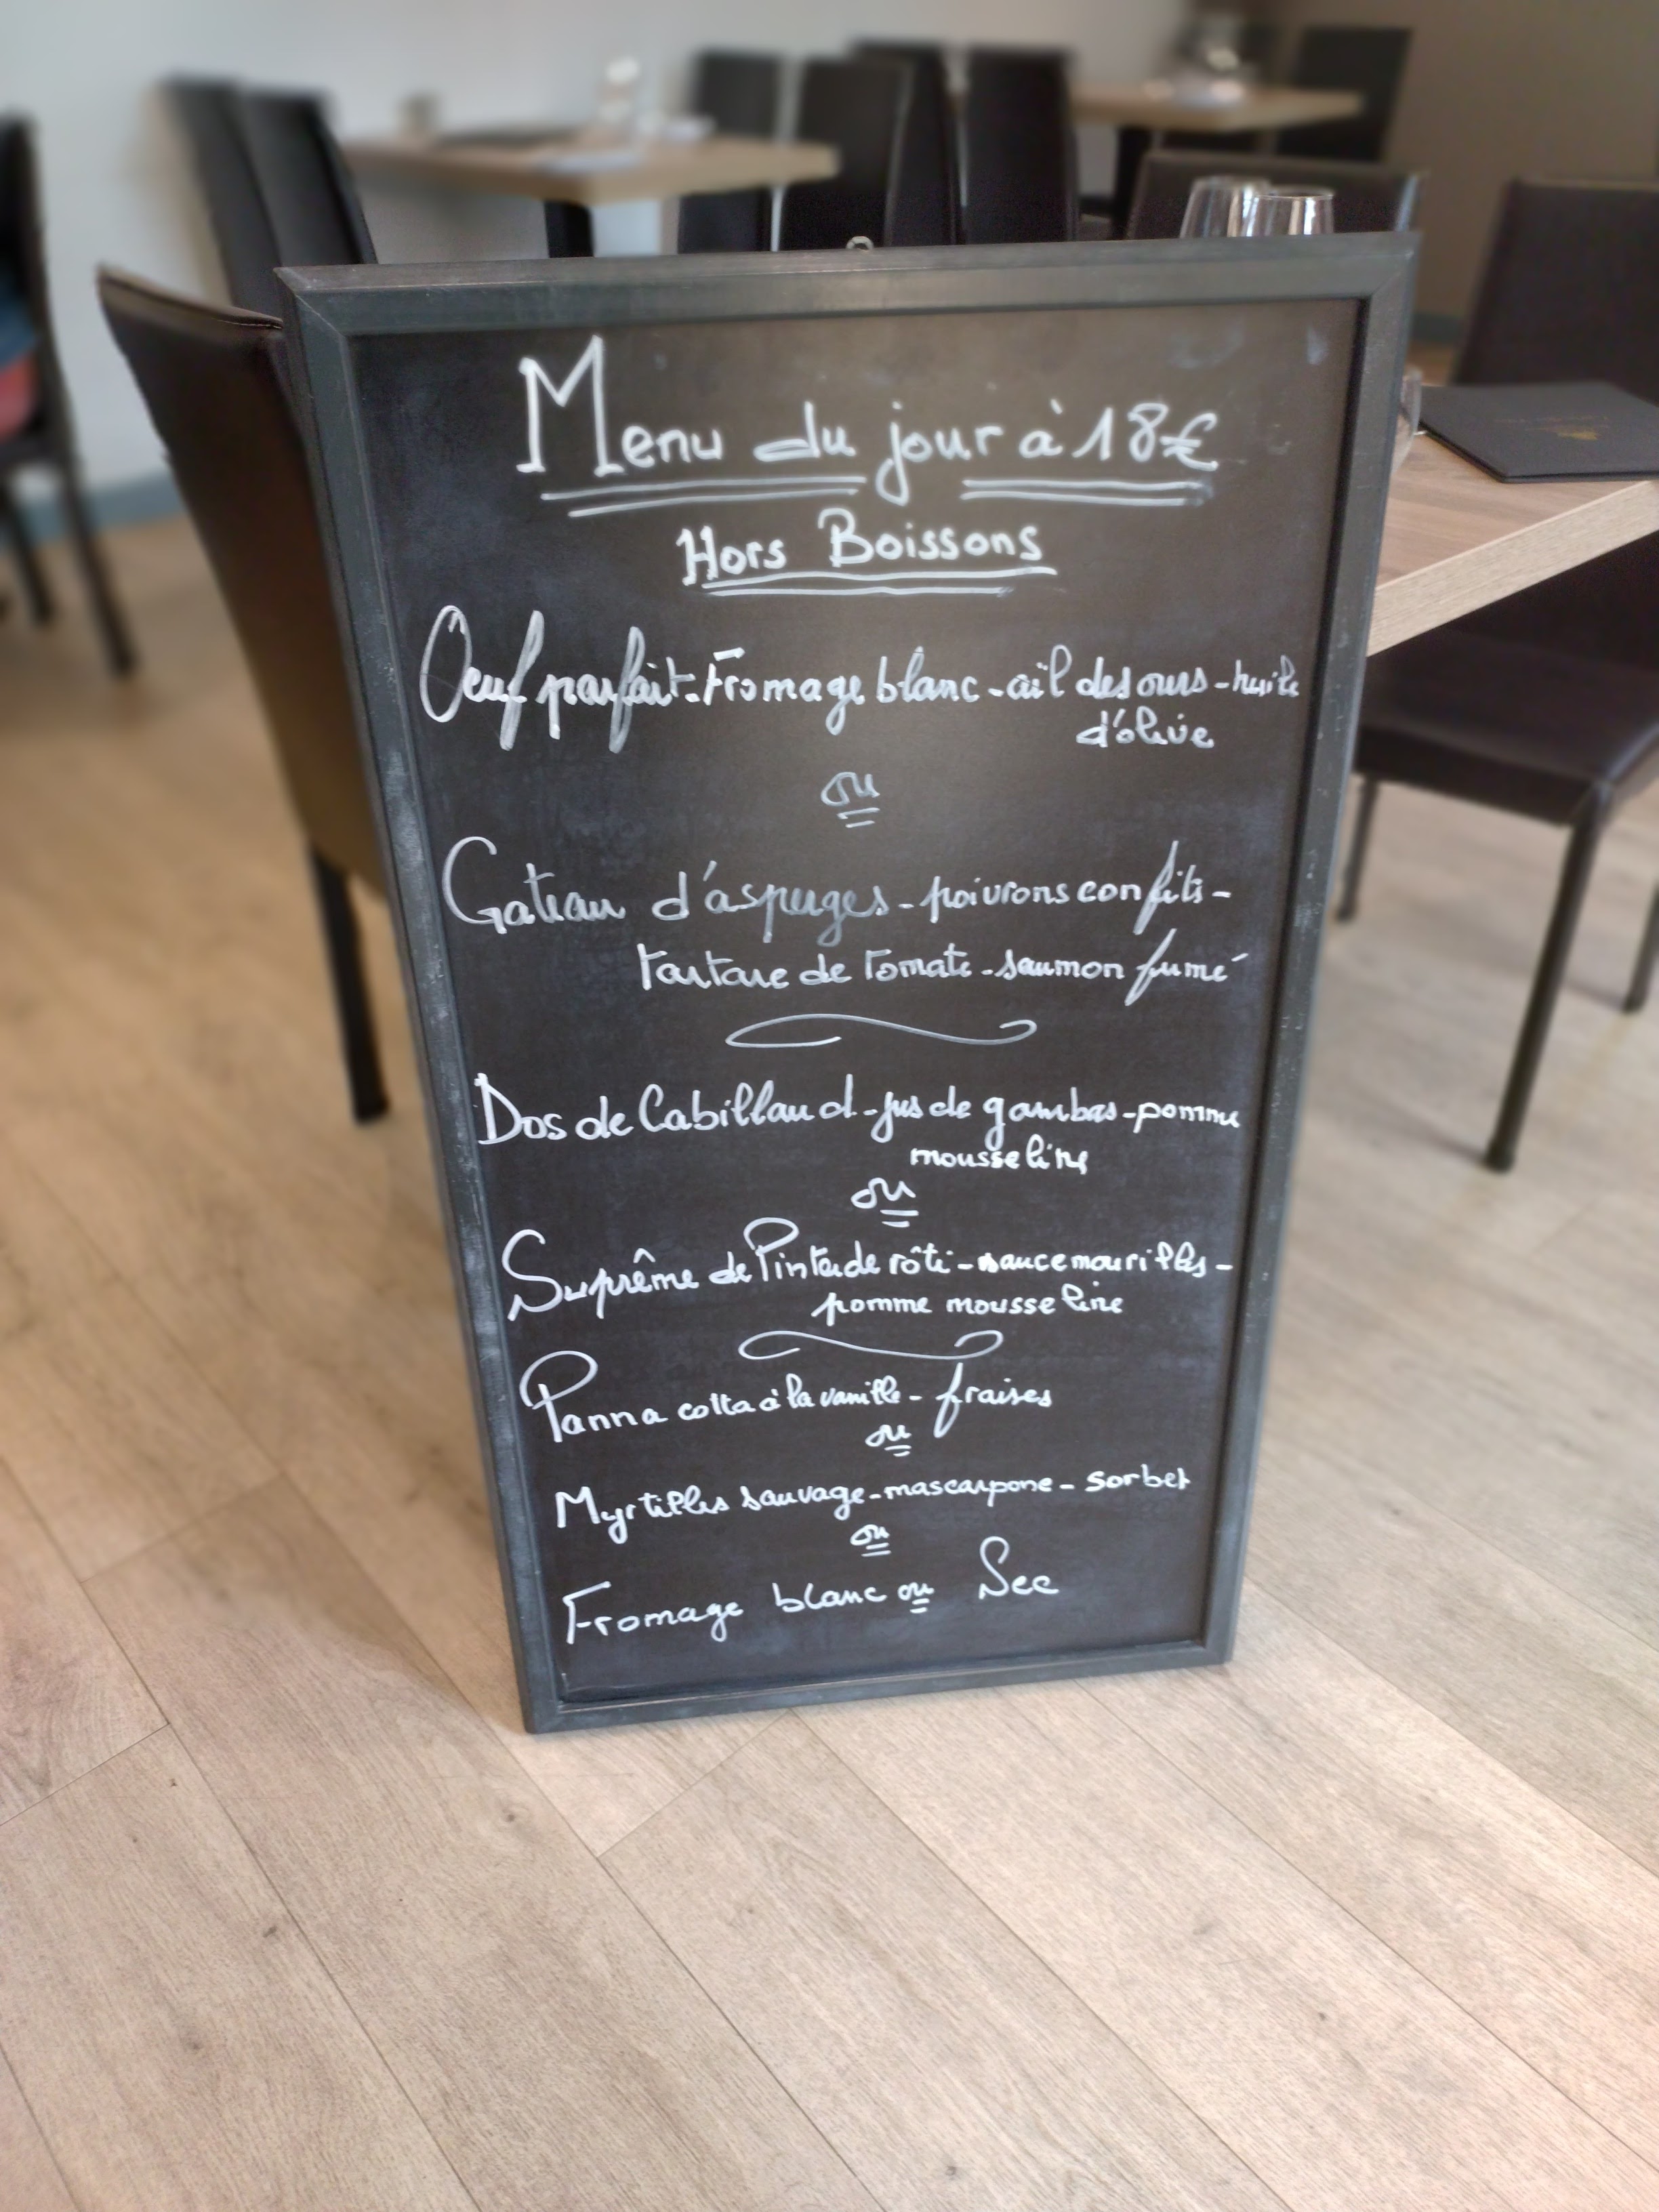 Menu du jour à 18€
Hors Boissons
Oeuf parfait - Fromage blanc - ail des ours - huile
d'olive
ou
Gateau d'asperges - poivrons confits -
tartare de Tomate - saumon fumé
Dos de Cabillaud - jus de gambas - pomme
mousseline
ou
Suprême de Pintade rôti - sauce mourilles -
pomme mousseline
Panna cotta à la vanille - fraises
ou
Myrtilles sauvage - mascarpone - sorbet
ou
Fromage blanc ou Sec